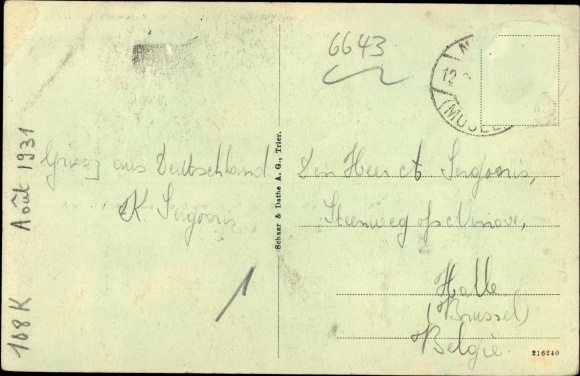 6643
12.
(MOSEL
Gruss aus Deutschland
K Sergooris
1
108 K Août 1931
Schaar & Dathe A. G., Trier.
Den Heer A Sergooris,
Steenweg op Ninove,
Halle
(Brussel)
België
216240